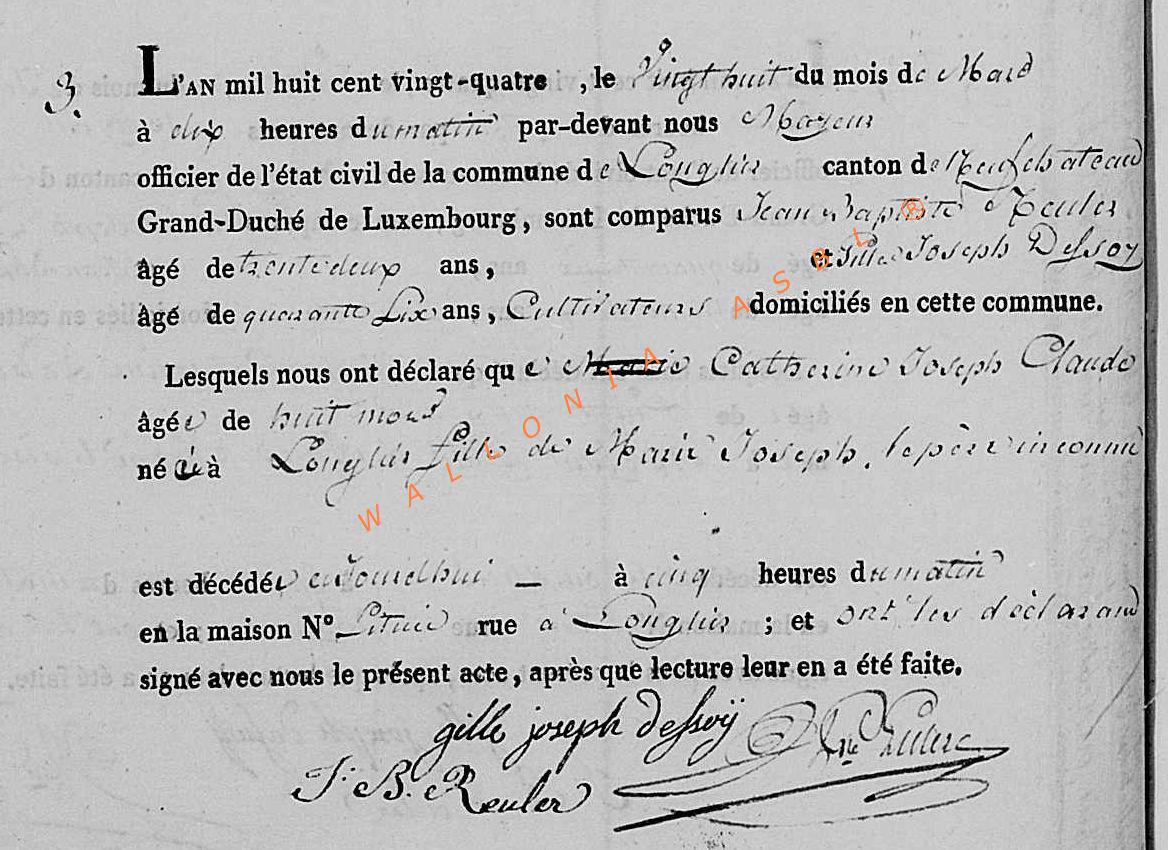 3. L'AN mil huit cent vingt-quatre , le Vingt huit du mois de Mard
à dix heures du matin par-devant nous Mayeur
officier de l'état civil de la commune de Longlier canton de Neufchateau
Grand-Duché de Luxembourg, sont comparus Jean Baptiste Reuler
âgé de trente deux ans, et Gille Joseph Dessoy
âgé de quarante Six ans, Cultivateurs domiciliés en cette commune.
Lesquels nous ont déclaré que Marie Catherine Joseph Claude
âgée de huit mois
née à Longlier fille de Marie Joseph, le père inconnu
est décédée aujourdhui — à cinq heures du matin
en la maison N° Situé rue à Longlier ; et ont les déclarand
signé avec nous le présent acte, après que lecture leur en a été faite.
gille joseph dessoÿ
J. B. Reuler
WALLONIA ASBL ®